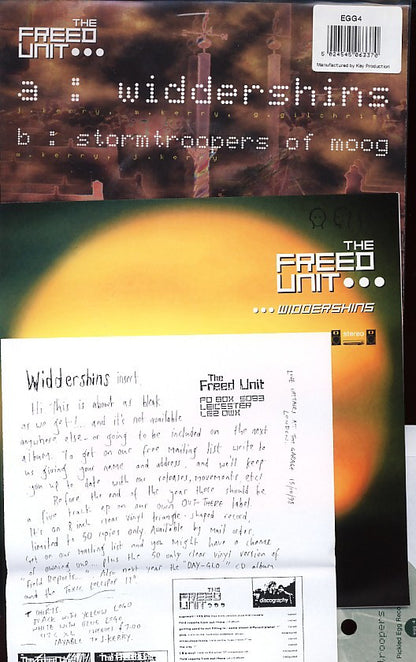 THE
FREED
UNIT•••
EGG4
5 024545 062370
Manufactured by Key Production
a : widdershins
j.kerry, m.kerry, g.gilchrist
b : stormtroopers of moog
m.kerry, j.kerry
THE
FREED
UNIT•••
•••WIDDERSHINS
stereo
Widdershins insert.
The
Freed Unit
PO BOX 5093
LEICESTER
LE2 0WX
Hi. This is about as bleak
as we get!, and it's not available
anywhere else or going to be included on the next
album. To get on our free mailing list write to
us giving your name and address, and we'll keep
you up to date with our releases, movements, etc!
Before the end of the year there should be
a five track ep on our own OUT-THERE label.
It's an 8 inch clear vinyl triangle-shaped record,
limited to 50 copies only. Available by mail order.
Get on our mailing list and you might have a chance
of owning one. Plus the 50 only clear vinyl version of
"Field Reports..". Also next year the "DAY-GLO" CD album
and the Toxic Lollipop 11"
T SHIRTS.
BLACK WITH YELLOW LOGO
WHITE WITH BLUE LOGO
THE
FREED
UNIT•••
discography
troopers
Pickled Egg Reco